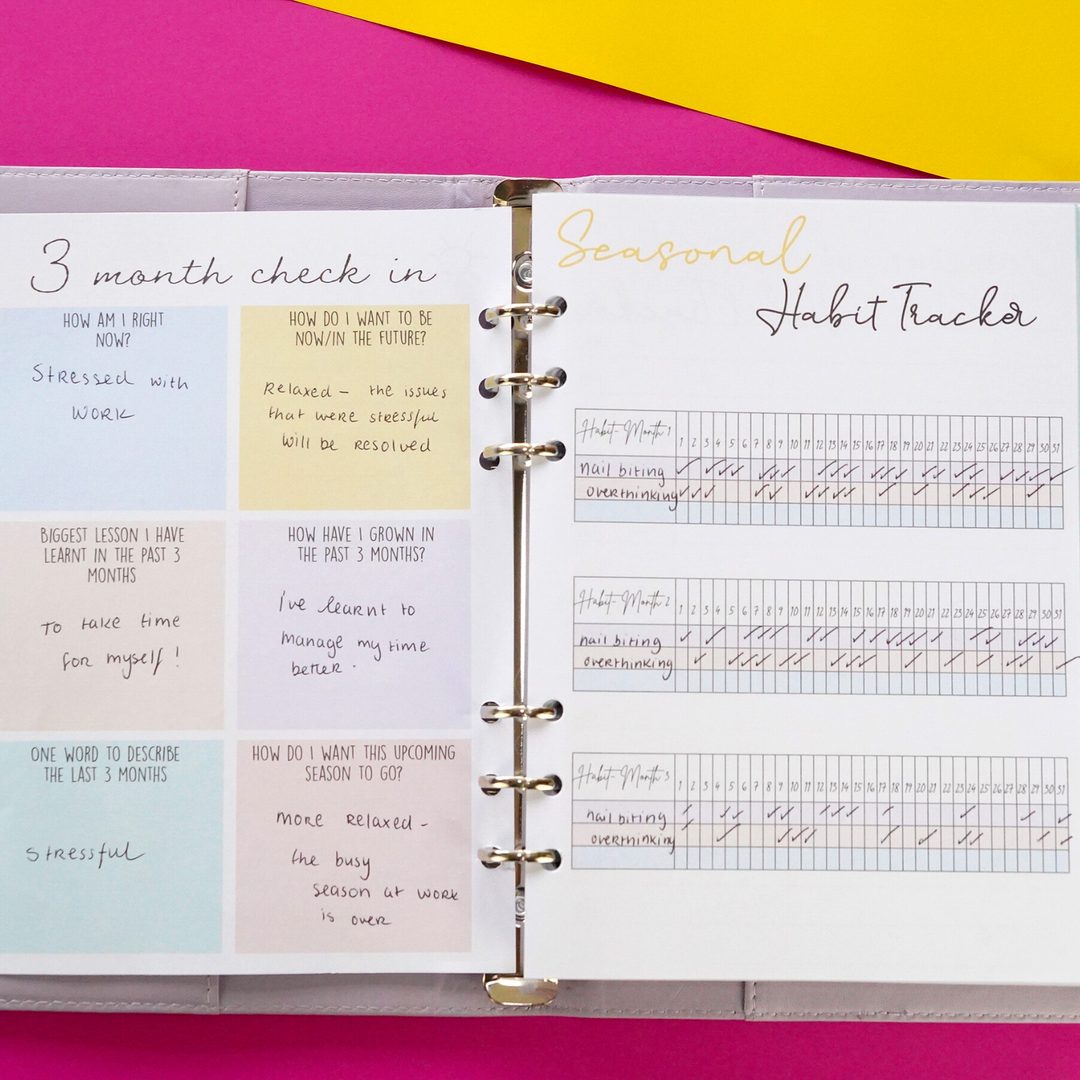 3 month check in
HOW AM I RIGHT
NOW?
Stressed with
work
HOW DO I WANT TO BE
NOW/IN THE FUTURE?
Relaxed – the issues
that were stressful
will be resolved
BIGGEST LESSON I HAVE
LEARNT IN THE PAST 3
MONTHS
To take time
for myself!
HOW HAVE I GROWN IN
THE PAST 3 MONTHS?
I've learnt to
manage my time
better.
ONE WORD TO DESCRIBE
THE LAST 3 MONTHS
stressful
HOW DO I WANT THIS UPCOMING
SEASON TO GO?
more relaxed –
the busy
season at work
is over
Seasonal
Habit Tracker
Habit- Month 1 1 2 3 4 5 6 7 8 9 10 11 12 13 14 15 16 17 18 19 20 21 22 23 24 25 26 27 28 29 30 31
nail biting
overthinking
Habit- Month 2 1 2 3 4 5 6 7 8 9 10 11 12 13 14 15 16 17 18 19 20 21 22 23 24 25 26 27 28 29 30 31
nail biting
overthinking
Habit- Month 3 1 2 3 4 5 6 7 8 9 10 11 12 13 14 15 16 17 18 19 20 21 22 23 24 25 26 27 28 29 30 31
nail biting
overthinking